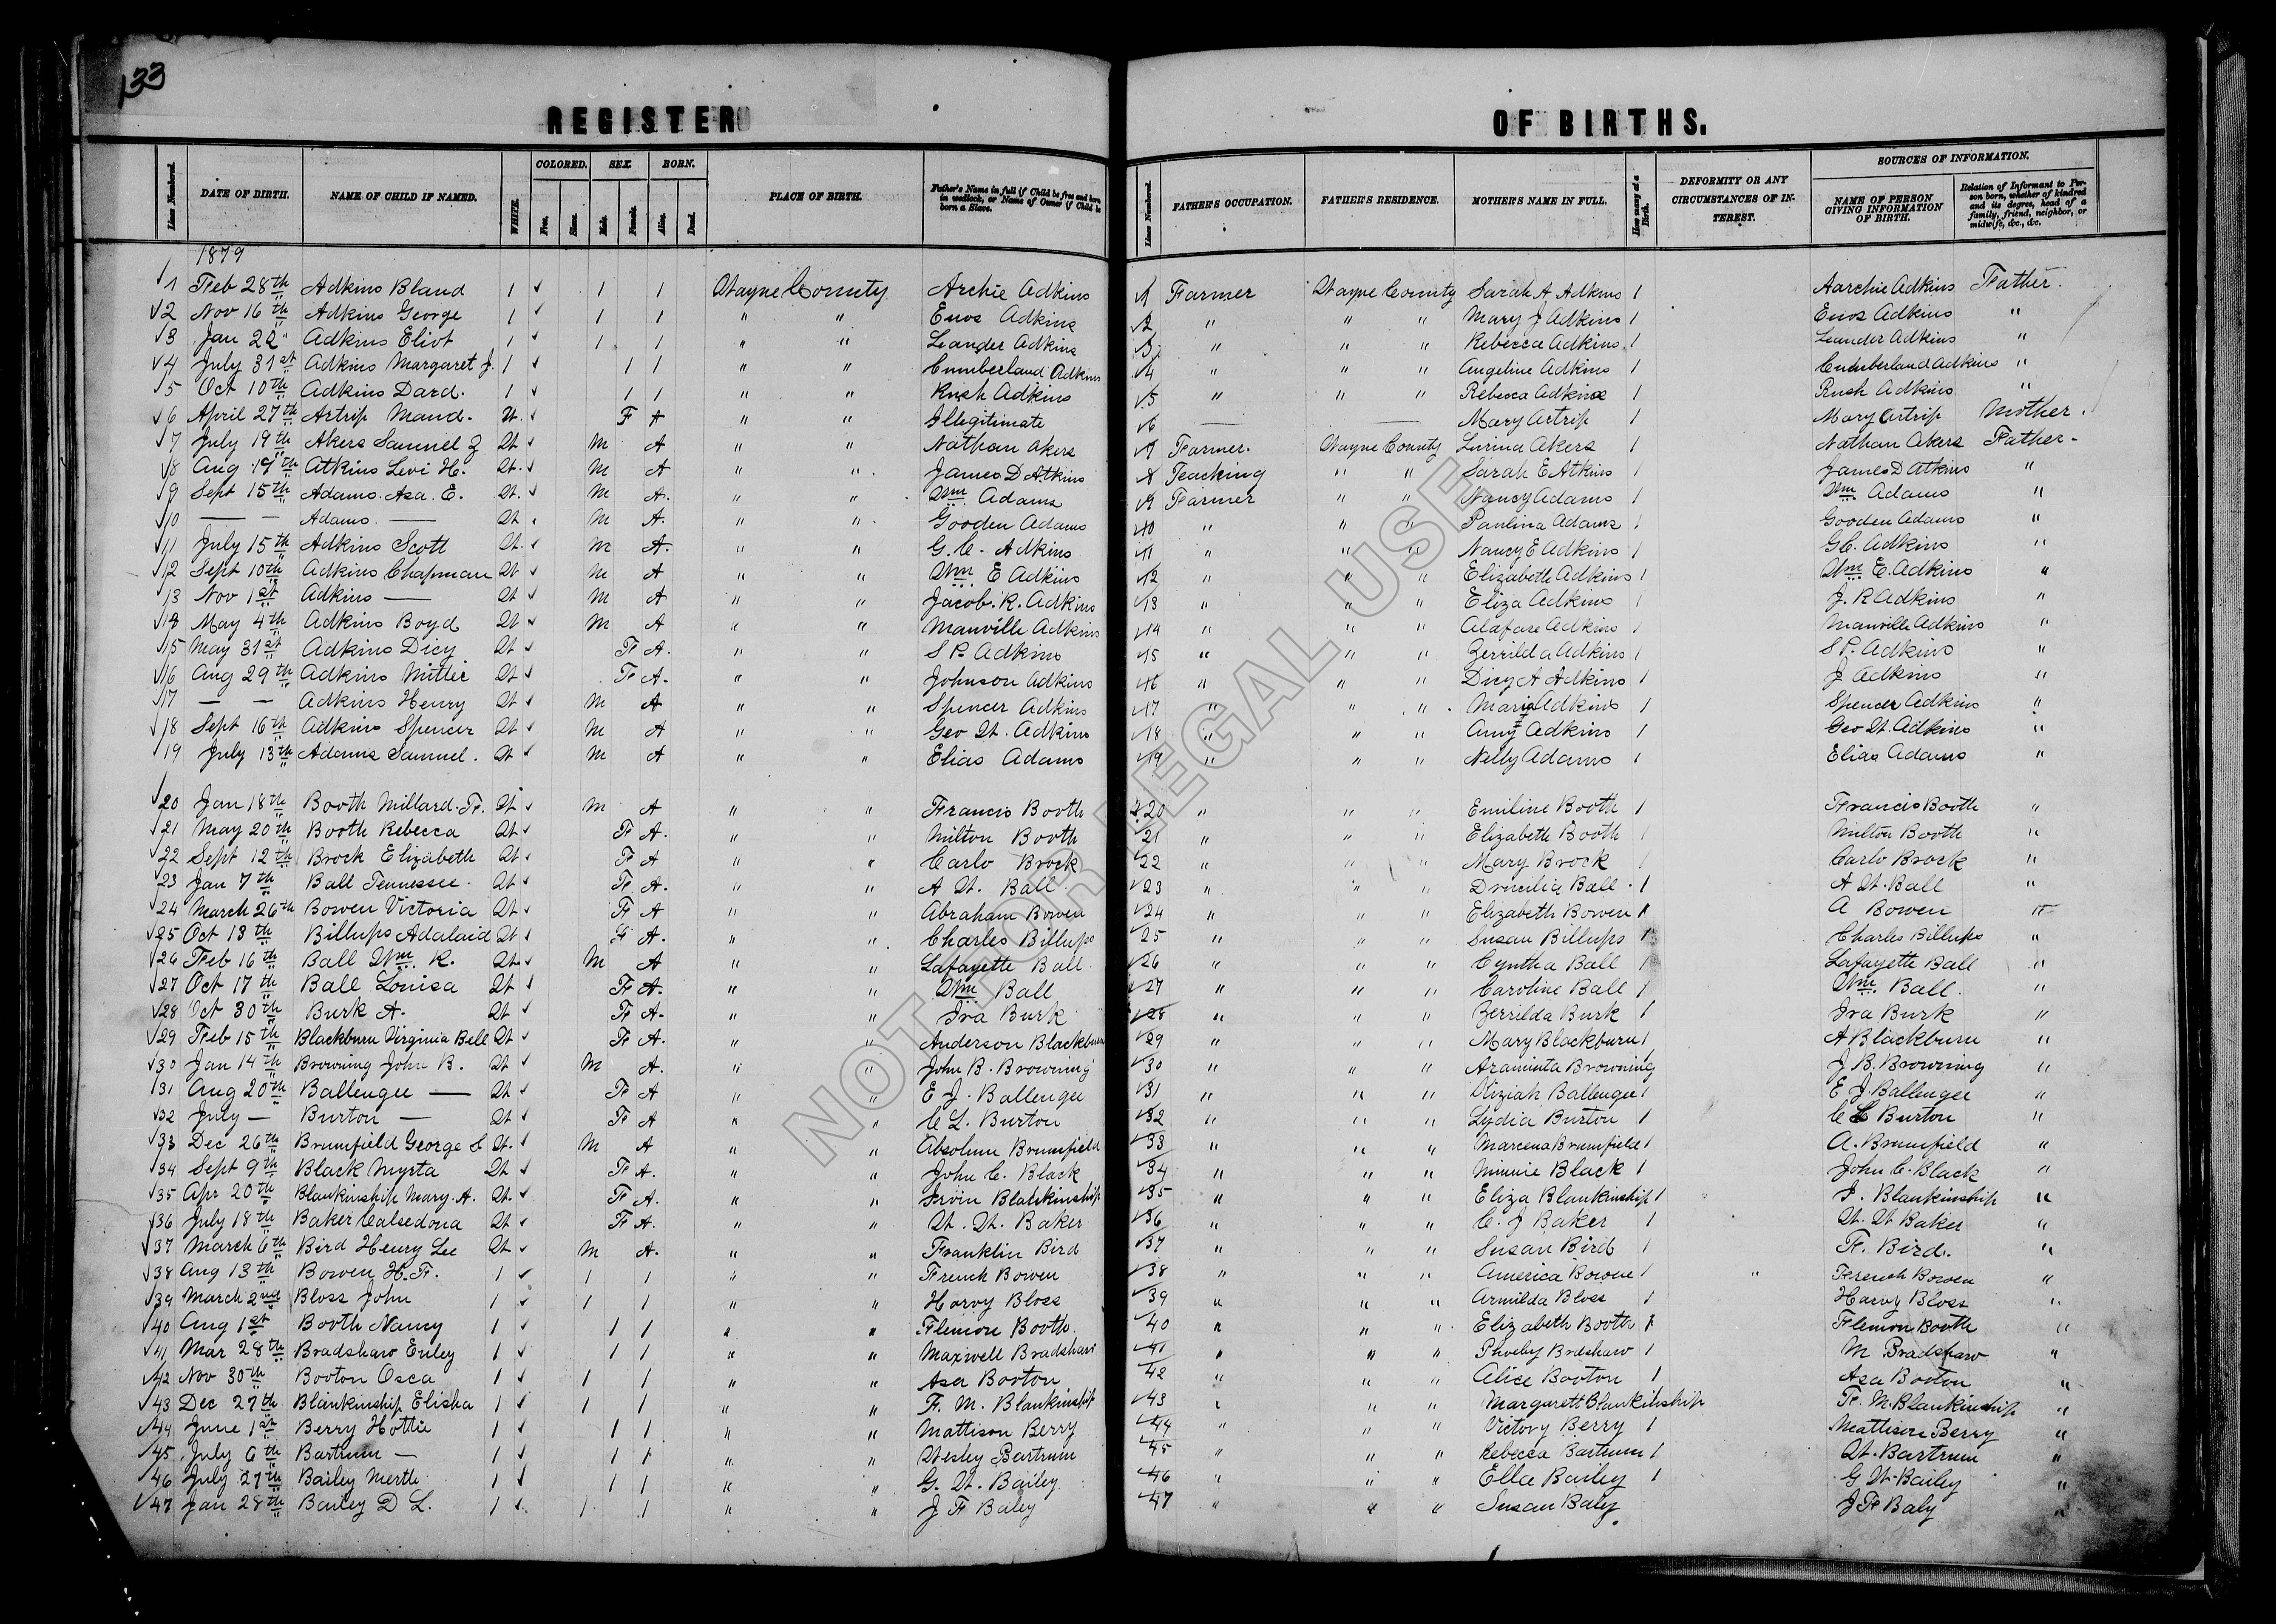 133
REGISTER OF BIRTHS.
Lines Numbered. DATE OF BIRTH. NAME OF CHILD IF NAMED. WHITE. COLORED. Free. Slave. SEX. Male. Female. BORN. Alive. Dead. PLACE OF BIRTH. Father's Name in full if Child be free and born in wedlock, or Name of Owner if Child be born a Slave. Lines Numbered. FATHER'S OCCUPATION. FATHER'S RESIDENCE. MOTHER'S NAME IN FULL. How many at a Birth. DEFORMITY OR ANY CIRCUMSTANCES OF INTEREST. SOURCES OF INFORMATION. NAME OF PERSON GIVING INFORMATION OF BIRTH. Relation of Informant to Person born, whether of kindred and its degree, head of a family, friend, neighbor, or midwife, &c., &c.
1879
1 Feb 28th Adkins Bland 1 ✓ 1 1 Wayne County Archie Adkins 1 Farmer Wayne County Sarah A Adkins 1 Aarchie Adkins Father.
2 Nov 16th Adkins George 1 ✓ 1 1 " " Enos Adkins 2 " " " Mary J Adkins 1 Enos Adkins "
3 Jan 22" Adkins Eliot 1 ✓ 1 1 " " Leander Adkins 3 " " " Rebecca Adkins 1 Leander Adkins "
4 July 31st Adkins Margaret J. 1 ✓ 1 1 " " Cumberland Adkins 4 " " " Angeline Adkins 1 Cumberland Adkins "
5 Oct 10th Adkins Dard. 1 ✓ 1 1 " " Rush Adkins 5 " " " Rebecca Adkins 1 Rush Adkins "
6 April 27th Artrip Maud. W. ✓ F A " " Illegitimate 6 — — Mary Artrip 1 Mary Artrip Mother.
7 July 19th Akers Samuel Z W ✓ M A " " Nathan Akers 7 Farmer. Wayne County Lurina Akers 1 Nathan Akers Father-
8 Aug 19th Atkins Levi H. W. ✓ M A " " James D Atkins 8 Teaching " " Sarah E Atkins 1 James D Atkins "
9 Sept 15th Adams. Asa. E. W. ✓ M A. " " Wm Adams 9 Farmer " " Nancy Adams 1 Wm Adams "
10 — — Adams. — W. M A. " " Gooden Adams 10 " " " Paulina Adams 1 Gooden Adams "
11 July 15th Adkins Scott W. ✓ M A. " " G. C. Adkins 11 " " " Nancy E Adkins 1 G C. Adkins "
12 Sept 10th Adkins Chapman W ✓ M A " " Wm E Adkins 12 " " " Elizabeth Adkins 1 Wm E. Adkins "
13 Nov 1st Adkins — W ✓ M A " " Jacob. R. Adkins 13 " " " Eliza Adkins 1 J. R Adkins "
14 May 4th Adkins Boyd W ✓ M A " " Manville Adkins 14 " " " Alafare Adkins 1 Manville Adkins "
15 May 31st Adkins Dicy W ✓ F A. " " S P. Adkins 15 " " " Zerrilda Adkins 1 S P. Adkins "
16 Aug 29th Adkins Mittie W ✓ F A. " " Johnson Adkins 16 " " " Dicy A Adkins 1 J Adkins "
17 — — Adkins Henry W ✓ M A " " Spencer Adkins 17 " " " Adkins 1 Spencer Adkins "
18 Sept 16th Adkins Spencer W ✓ M A " " Geo W. Adkins 18 " " " Amy Adkins 1 Geo W. Adkins "
19 July 13th Adams Samuel. W ✓ M A " " Elias Adams 19 " " " Nelly Adams 1 Elias Adams "
20 Jan 18th Booth Millard. F. W ✓ M A " " Francis Booth 20 " " " Emiline Booth 1 Francis Booth "
21 May 20th Booth Rebecca W ✓ F A. " " Milton Booth 21 " " " Elizabeth Booth 1 Milton Booth "
22 Sept 12th Brock Elizabeth W ✓ F A " " Carlo Brock 22 " " " Mary Brock 1 Carlo Brock "
23 Jan 7th Ball Tennessee. W ✓ F A. " " A W. Ball 23 " " " Drucilia Ball. 1 A W. Ball "
24 March 26th Bowen Victoria W ✓ F A " " Abraham Bowen 24 " " " Elizabeth Bowen 1 A Bowen "
25 Oct 13th Billups Adalaid W ✓ F A. " " Charles Billups 25 " " " Susan Billups 1 Charles Billups "
26 Feb 16th Ball Wm. R. W ✓ M A " " Lafayette Ball 26 " " " Cyntha Ball 1 Lafayette Ball "
27 Oct 17th Ball Louisa W ✓ F A. " " Wm Ball 27 " " " Caroline Ball 1 Wm. Ball. "
28 Oct 30th Burk A. W ✓ F A. " " Ira Burk 28 " " " Zerrilda Burk 1 Ira Burk "
29 Feb 15th Blackburn Virginia Bell W ✓ F A. " " Anderson Blackburn 29 " " " Mary Blackburn 1 A Blackburn "
30 Jan 14th Browning John B. W ✓ M A. " " John B. Browning 30 " " " Araminta Browning J. B. Browning "
31 Aug 20th Ballengee — W ✓ F A " " E J. Ballengee 31 " " " Kiziah Ballengee 1 E. J. Ballengee "
32 July — Burton — W ✓ F A " " C L. Burton 32 " " " Lydia Burton 1 C L Burton "
33 Dec 26th Brumfield George S W. ✓ M A " " Absolum Brumfield 33 " " " Marcena Brumfield 1 A. Brumfield "
34 Sept 9th Black Myrta W ✓ F A. " " John C. Black 34 " " " Minnie Black 1 John C. Black "
35 Apr 20th Blankinship Mary. A. W. ✓ F A. " " Irvin Blankinship 35 " " " Eliza Blankinship 1 I. Blankinship "
36 July 18th Baker Calsedona W ✓ F A. " " W. W. Baker 36 " " " C. J Baker 1 W. W Baker "
37 March 6th Bird Henry Lee W ✓ M A. " " Franklin Bird 37 " " " Susan Bird 1 F. Bird. "
38 Aug 13th Bowen H. F. 1 ✓ 1 1 " " French Bowen 38 " " " America Bowen 1 " French Bowen "
39 March 2nd Bloss John 1 ✓ 1 1 " " Harvy Bloss 39 " " " Armilda Bloss 1 Harvy Bloss "
40 Aug 1st Booth Nancy 1 ✓ 1 1 " " Flemon Booth 40 " " " Elizabeth Booth 1 Flemon Booth "
41 Mar 28th Bradshaw Enley 1 ✓ 1 1 " " Maxwell Bradshaw 41 " " " Phoeby Bradshaw 1 M Bradshaw "
42 Nov 30th Booton Osca 1 ✓ 1 1 " " Asa Booton 42 " " " Alice Booton 1 Asa Booton "
43 Dec 27th Blankinship Elisha 1 ✓ 1 1 " " F. M. Blankinship 43 " " " Margarett Blankinship F. M. Blankinship "
44 June 1st Berry Hottie 1 ✓ 1 1 " " Mattison Berry 44 " " " Victory Berry 1 Mattison Berry "
45 July 6th Bartrum — 1 ✓ 1 1 " " Wesley Bartrum 45 " " " Rebecca Bartrum 1 W. Bartrum "
46 July 27th Bailey Mertle 1 ✓ 1 1 " " G. W. Bailey 46 " " " Ella Bailey 1 G W. Bailey "
47 Jan 28th Bailey D L. 1 ✓ 1 1 " " J F Baley 47 " " " Susan Baly J F Baly "
NOT FOR LEGAL USE